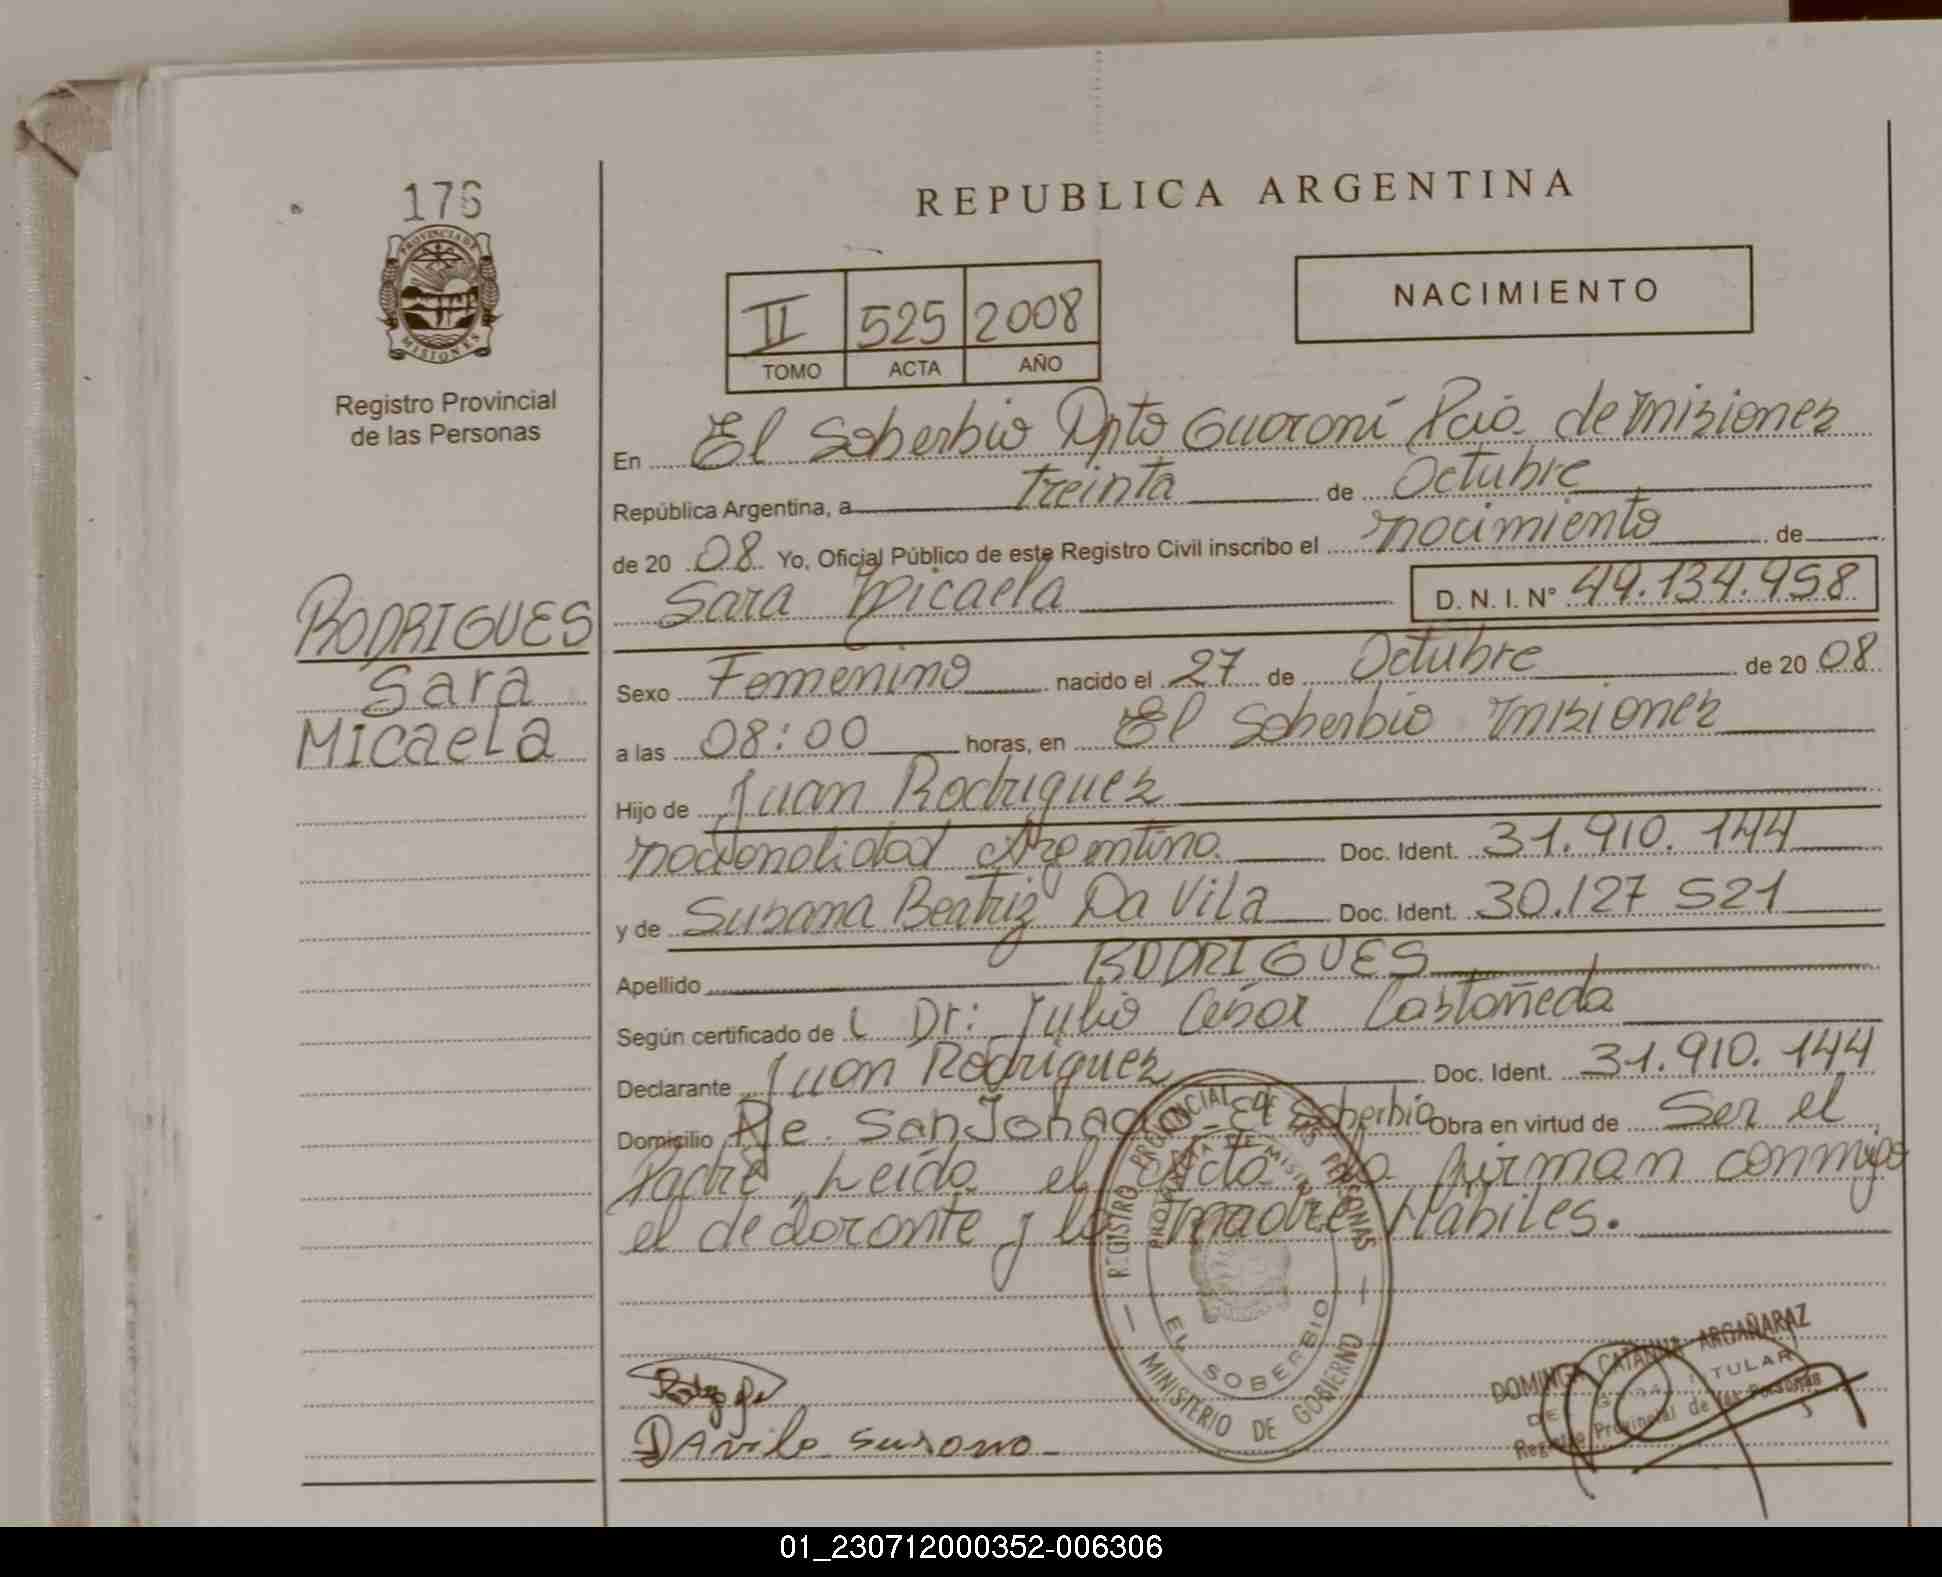 176
REPUBLICA ARGENTINA
PROVINCIA DE
MISIONES
Registro Provincial
de las Personas
II 525 2008
TOMO ACTA AÑO
NACIMIENTO
En El Soberbio Dpto Guaraní Pcia. de Misiones
República Argentina, a Treinta de Octubre
de 20 08 Yo, Oficial Público de este Registro Civil inscribo el nacimiento de
Sara Micaela D. N. I. N° 49.134.958
RODRIGUES
Sara
Micaela
Sexo Femenino nacido el 27 de Octubre de 20 08
a las 08:00 horas, en El Soberbio Misiones
Hijo de Juan Rodriguez
nacionalidad Argentina Doc. Ident. 31.910.144
y de Susana Beatriz Da Vila Doc. Ident. 30.127 521
Apellido RODRIGUES
Según certificado de Dr: Julio Cesar Castañeda
Declarante Juan Rodriguez Doc. Ident. 31.910.144
Domicilio Pje. San Ignacio El Soberbio Obra en virtud de Ser el
Padre, Leída el Acta la firman conmigo
el declarante y la madre Habiles.
REGISTRO PROVINCIAL DE LAS PERSONAS
PROVINCIA DE MISIONES
EL SOBERBIO
MINISTERIO DE GOBIERNO
DAvila Susana
DOMINGA CATALINA ARGAÑARAZ
TITULAR
Registro Provincial de las Personas
01_230712000352-006306